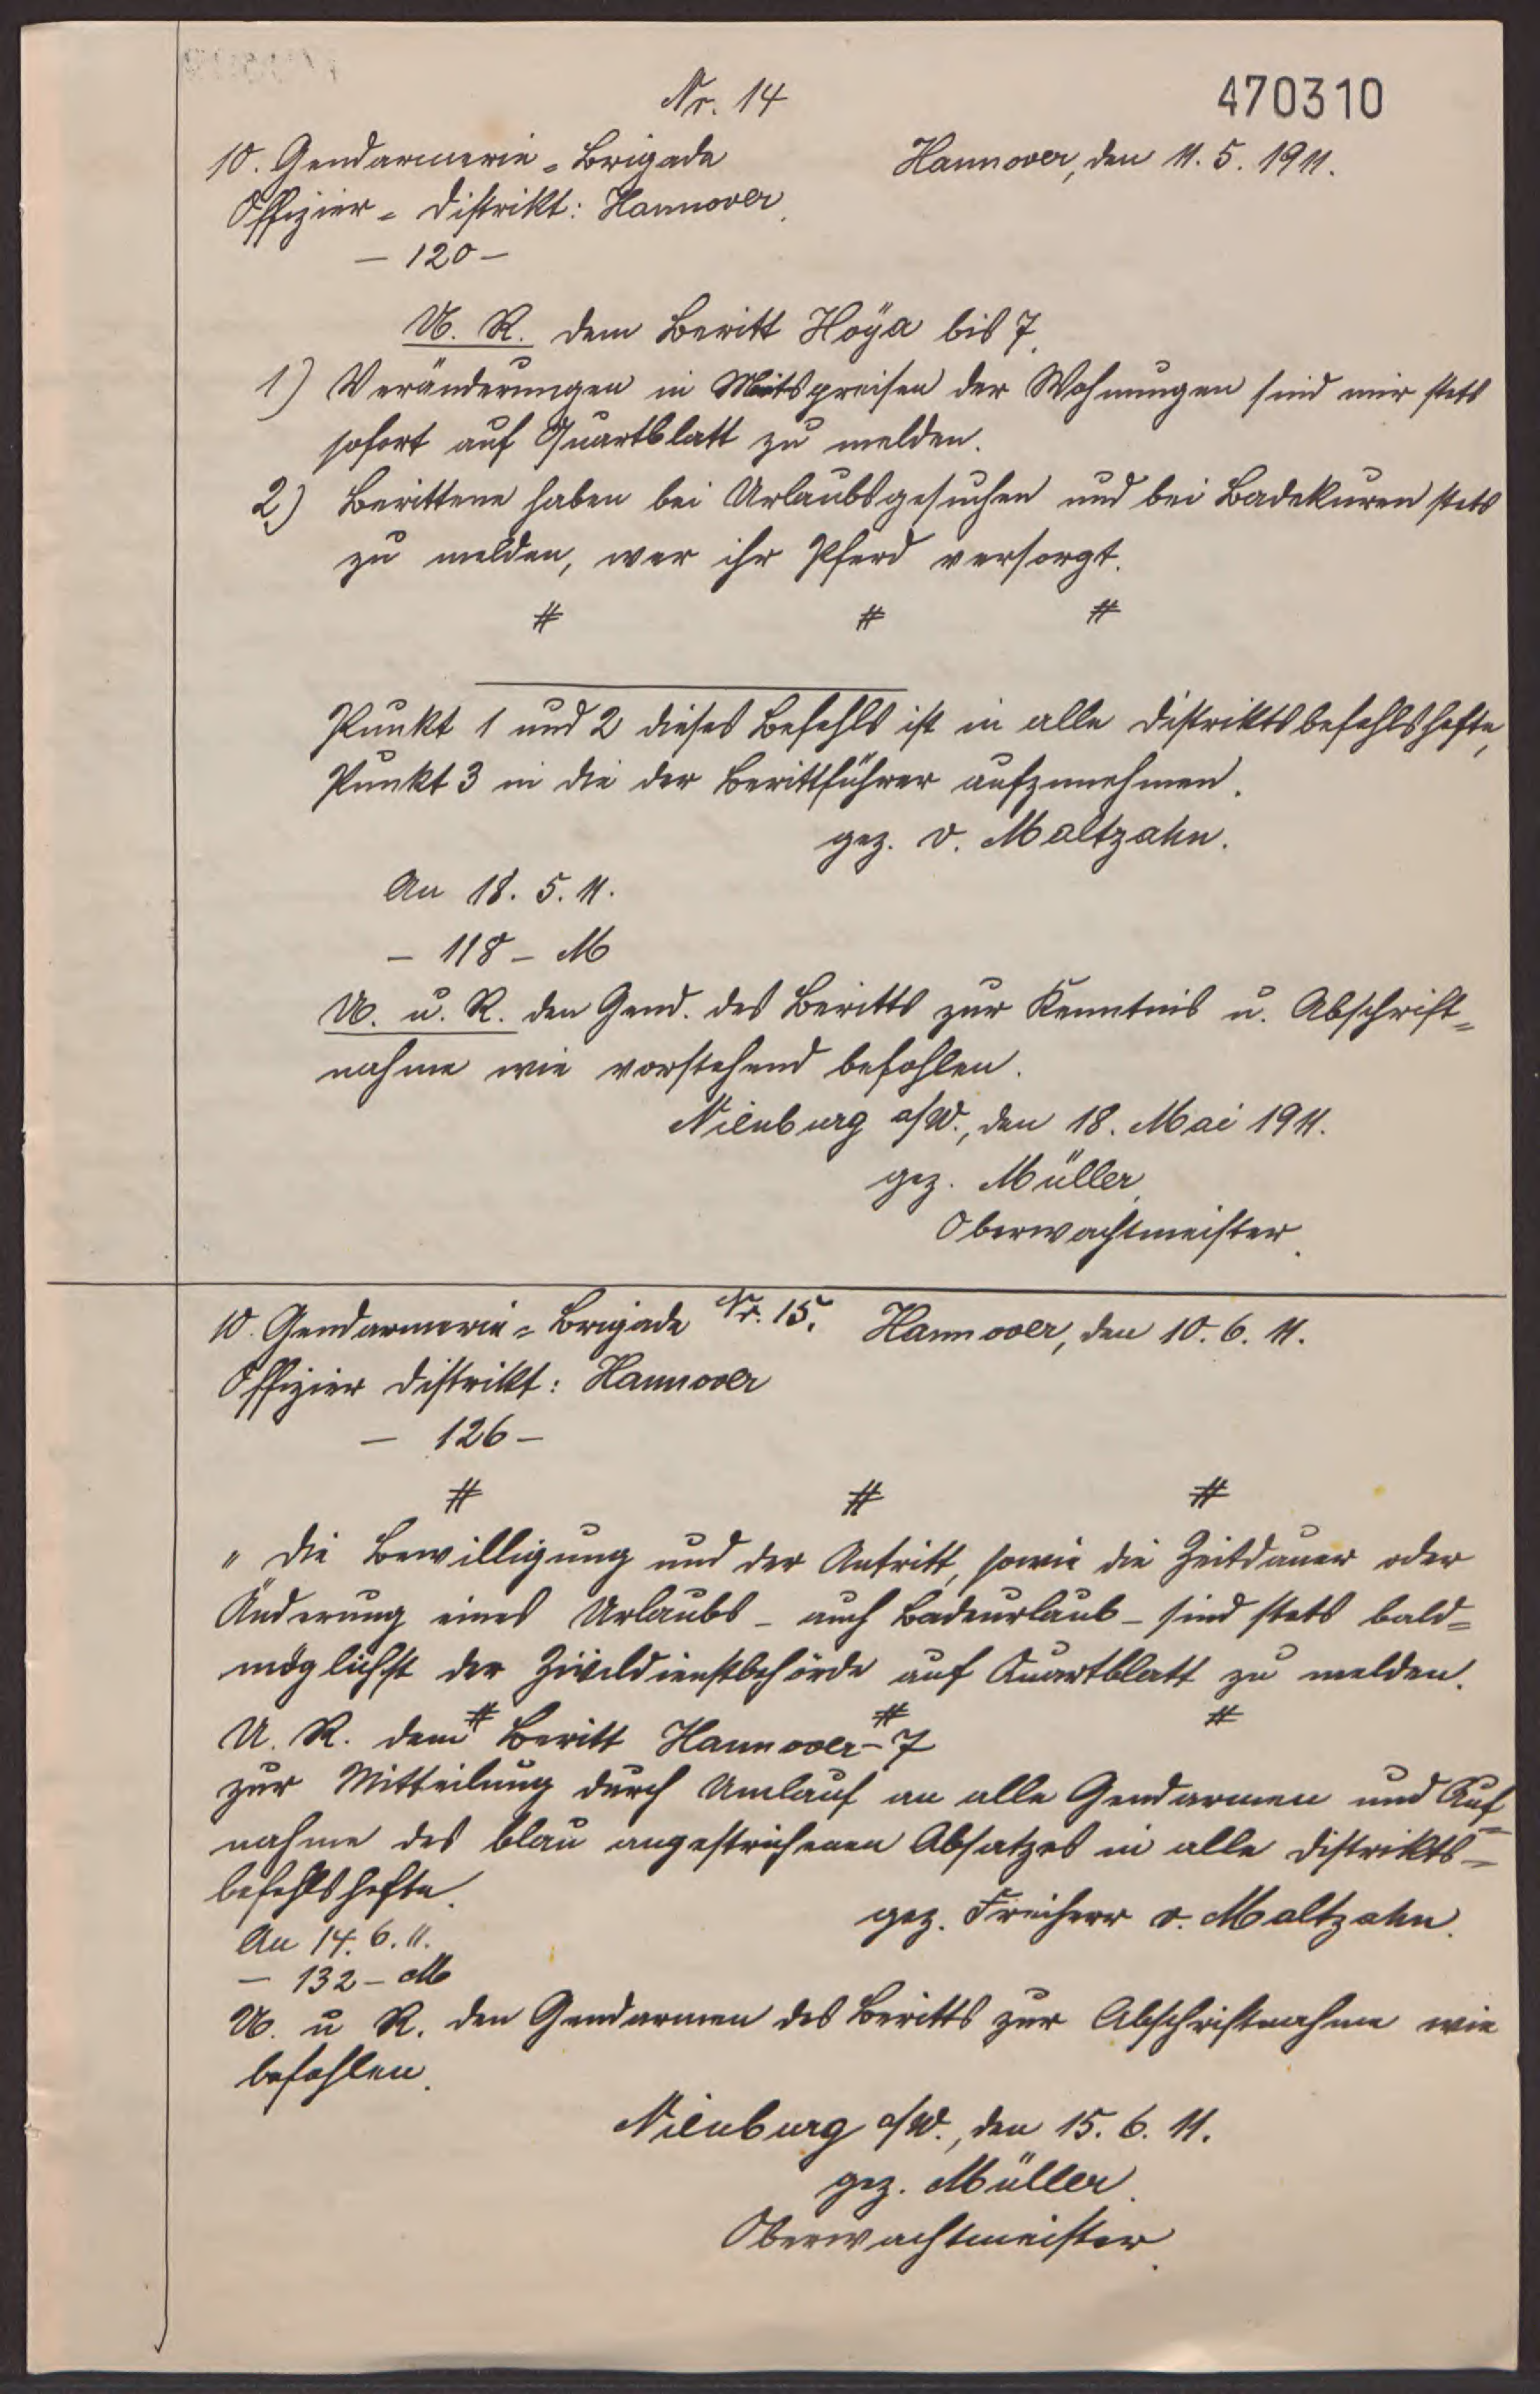 470310
Nr. 14
10. Gendarmerie-Brigade Hannover, den 11. 5. 1911.
Offizier-Distrikt: Hannover.
— 120 —
U. R. dem Beritt Hoÿa bis 7.
1) Veränderungen in Mietspreisen der Wohnungen sind mir stets
sofort auf Quartblatt zu melden.
2) Berittene haben bei Urlaubsgesuchen und bei Badekuren stets
zu melden, wer ihr Pferd versorgt.
# # #
Punkt 1 und 2 dieses Befehls ist in alle Distriktsbefehlshefte,
Punkt 3 in die der Berittführer aufzunehmen.
gez. v. Maltzahn.
An 18. 5. 11.
— 118 — M
U. u. R. den Gend. des Beritts zur Kenntnis u. Abschrift=
nahme wie vorstehend befohlen.
Nienburg a/W., den 18. Mai 1911.
gez. Müller,
Oberwachtmeister.
10. Gendarmerie-Brigade Nr. 15. Hannover, den 10. 6. 11.
Offizier Distrikt: Hannover
— 126 —
# # #
" Die Bewilligung und der Antritt, sowie die Zeitdauer oder
Änderung eines Urlaubs – auch Badeurlaub – sind stets bald=
möglichst der Zivildienstbehörde auf Quartblatt zu melden.
# # #
U. R. dem Beritt Hannover – 7
zur Mitteilung durch Umlauf an alle Gendarmen und Auf=
nahme des blau angestrichenen Absatzes in alle Distrikts=
befehlshefte.
gez. Freiherr v. Maltzahn.
An 14. 6. 11.
— 132 — M
U. u R. den Gendarmen des Beritts zur Abschriftnahme wie
befohlen.
Nienburg a/W., den 15. 6. 11.
gez. Müller.
Oberwachtmeister.